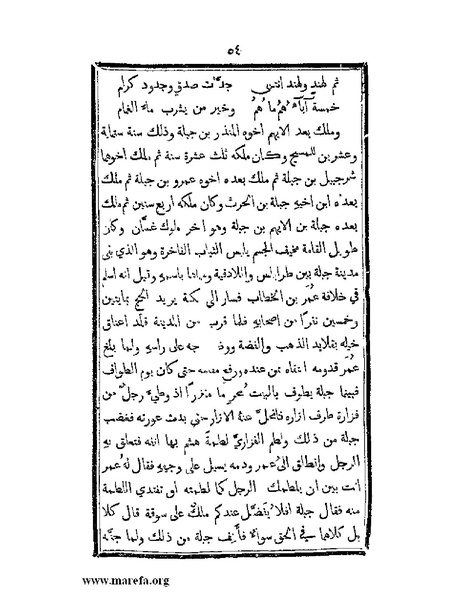 ٥٤
ثم لهندٍ ولهندٍ انتمى جدَّات صدقٍ وجدود كرام
خمسة آباءٍ همُ ما همُ وخير من يشرب ماء الغمام
وملك بعد الايهم اخوه المنذر بن جبلة وذلك سنة ستماية
وعشرين للمسيح وكان ملكه ثلث عشرة سنة ثم ملك اخوها
شرحبيل بن جبلة ثم ملك بعده اخوه عمرو بن جبلة ثم ملك
بعده ابن اخيهِ جبلة بن الحرث وكان ملكه اربع سنين ثم ملك
بعده جبلة بن الايهم بن جبلة وهو اخر ملوك غسَّان وكان
طويل القامة سخيف الجسم يلبس الثياب الفاخرة وهو الذي بنى
مدينة جبلة بين طرابلس واللاذقية وسماها باسمهِ وقيل انه اسلم
في خلافة عُمَر بن الخطاب فسار الى مكة يريد الحج بمايتين
وخمسين نفرًا من اصحابهِ فلما قرب من المدينة قلد اعناق
خيله بقلايد الذهب والفضة ووضع جه على راسهِ ولما بلغ
عُمَر قدومه من عنده ورفع حتى كان يوم الطواف
فبينما جبلة يطوف بالبيت اذ وطيَ رجلٌ من
فزارة طرف ازاره فانحلَّ عنهُ الازار حتى بدت عورته فغضب
جبلة من ذلك ولطم الفزاريَّ لطمةً هشم بها انفه فتعلق بهِ
الرجل وانطلق الى عُمر ودمه يسيل على وجههِ فقال لهُ عُمر
انت بين ان يلطمك الرجل كما لطمته او تفتدي اللطمة
منه فقال جبلة افلا يُفضَّل عندكم ملكٌ على سوقة قال كلا
بل كلاهما في الحق سواءٌ فأَنِف جبلة من ذلك ولما جنَّه
www.marefa.org